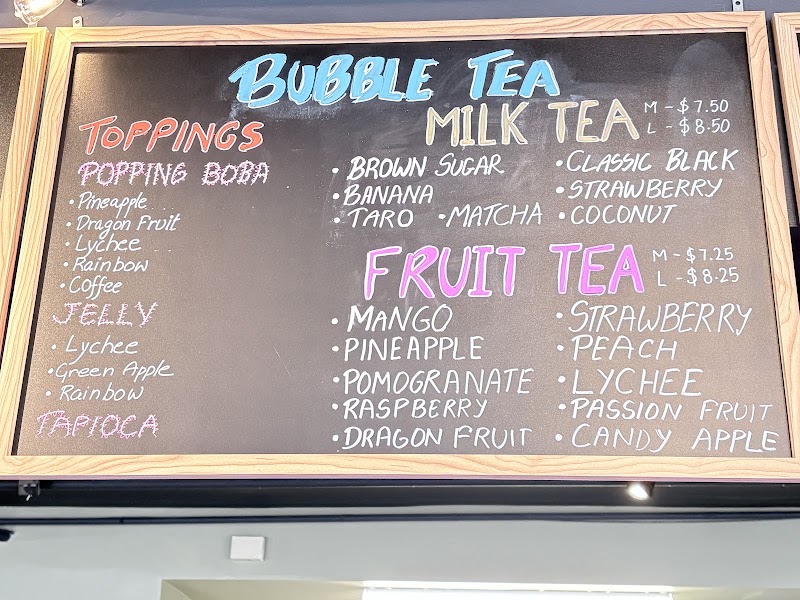 BUBBLE TEA
TOPPINGS
POPPING BOBA
• Pineapple
• Dragon Fruit
• Lychee
• Rainbow
• Coffee
JELLY
• Lychee
• Green Apple
• Rainbow
TAPIOCA
MILK TEA M - $7.50
L - $8.50
• BROWN SUGAR • CLASSIC BLACK
• BANANA • STRAWBERRY
• TARO • MATCHA • COCONUT
FRUIT TEA M - $7.25
L - $8.25
• MANGO • STRAWBERRY
• PINEAPPLE • PEACH
• POMOGRANATE • LYCHEE
• RASPBERRY • PASSION FRUIT
• DRAGON FRUIT • CANDY APPLE